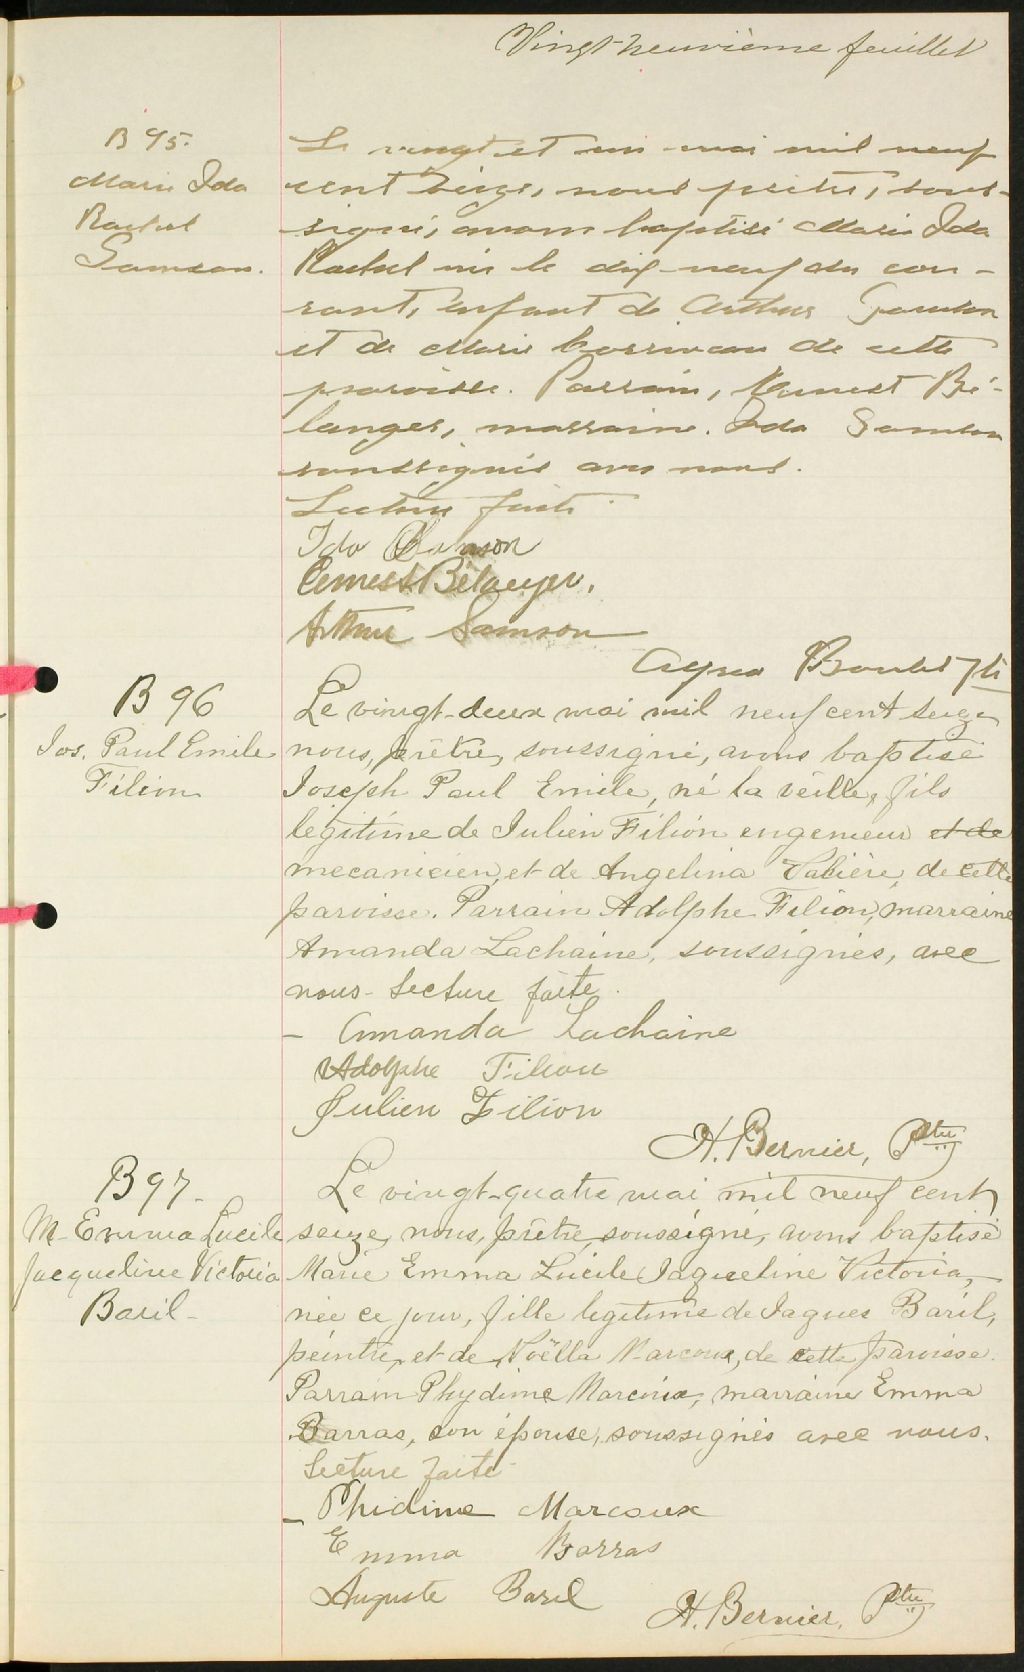 Vingt-neuvième feuillet
B 95.
Marie Ida
Rachel
Samson.
Le vingt et un mai mil neuf
cent seize, nous prêtre, sous-
signé, avons baptisé Marie Ida
Rachel née le dix-neuf du cou-
rant, enfant de Arthur Samson
et de Marie Corriveau de cette
paroisse. Parrain, Ernest Bé-
langer, marraine. Ida Samson
soussignés avec nous.
Lecture faite.
Ida Samson
Ernest Bélanger.
Arthur Samson
Boulet Ptr
B 96
Jos. Paul Emile
Filion
Le vingt-deux mai mil neuf cent seize
nous, prêtre, soussigné, avons baptisé
Joseph Paul Emile, né la veille, fils
légitime de Julien Filion engenieur et de
mecanicien, et de Angelina Valière, de cette
paroisse. Parrain Adolphe Filion, marraine
Amanda Lachaine, soussignés, avec
nous. Lecture faite.
- Amanda Lachaine
Adolphe Filion
Julien Filion
H. Bernier, Ptre
B 97.
M. Emma Lucile
Jacqueline Victoria
Baril.
Le vingt-quatre mai mil neuf cent
seize, nous, prêtre, soussigné, avons baptisé
Marie Emma Lucile Jaqueline Victoria,
née ce jour, fille legitime de Jaques Baril,
peintre, et de Noëlla Marcoux, de cette paroisse.
Parrain Phydime Marcoux, marraine Emma
Barras, son épouse, soussignés avec nous.
Lecture faite.
- Phidime Marcoux
Emma Barras
Auguste Baril
H. Bernier, Ptre